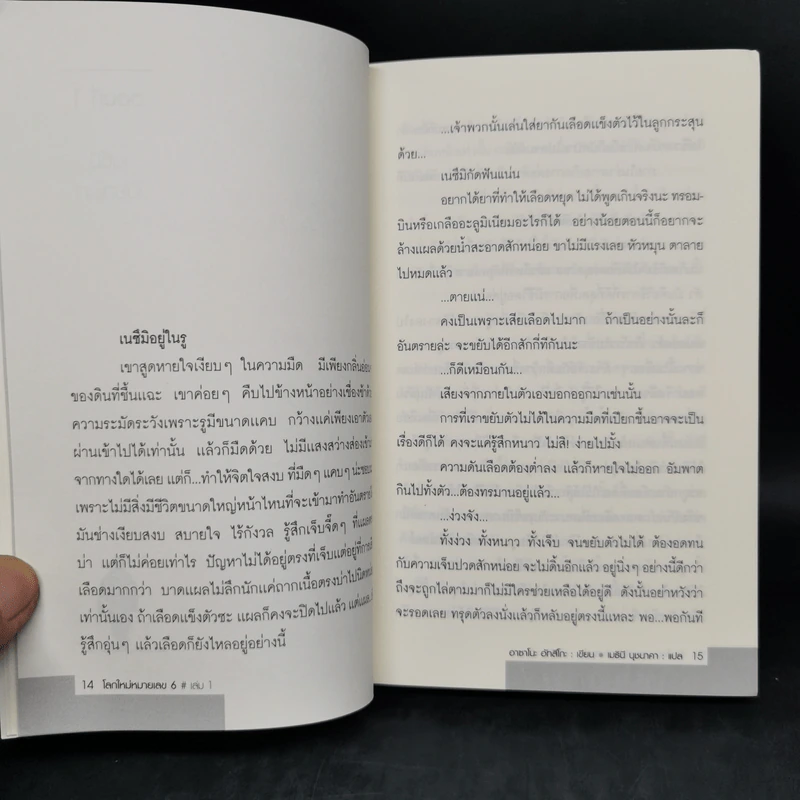 เนซึมิอยู่ในรู
เขาสูดหายใจเงียบๆ ในความมืด มีเพียงกลิ่น
ของดินที่ชื้นแฉะ เขาค่อยๆ คืบไปข้างหน้าอย่างเชื่องช้า
ความระมัดระวังเพราะรูมีขนาดแคบ กว้างแค่เพียงเอาตัว
ผ่านเข้าไปได้เท่านั้น แล้วก็มืดด้วย ไม่มีแสงสว่างส่อง
จากทางใดได้เลย แต่ก็...ทำให้จิตใจสงบ ที่มืดๆ แคบๆ
เพราะไม่มีสิ่งมีชีวิตขนาดใหญ่หน้าไหนที่จะเข้ามาทำอันตราย
มันช่างเงียบสงบ สบายใจ ไร้กังวล รู้สึกเจ็บจี๊ดๆ
บ่า แต่ก็ไม่ค่อยเท่าไร ปัญหาไม่ได้อยู่ตรงที่เจ็บแต่อยู่ที่
เลือดมากกว่า บาดแผลไม่ลึกนักแค่ถากเนื้อตรงบ่าไป
เท่านั้นเอง ถ้าเลือดแข็งตัวซะ แผลก็คงจะปิดไปแล้ว
รู้สึกอุ่นๆ แล้วเลือดก็ยังไหลอยู่อย่างนี้
14 โลกใหม่หมายเลข 6 # เล่ม 1
...เจ้าพวกนั้นเล่นใส่ยากันเลือดแข็งตัวไว้ในลูกกระสุน
ด้วย...
เนซึมิกัดฟันแน่น
อยากได้ยาที่ทำให้เลือดหยุด ไม่ได้พูดเกินจริงนะ ทรอม-
บินหรือเกลืออะลูมิเนียมอะไรก็ได้ อย่างน้อยตอนนี้ก็อยากจะ
ล้างแผลด้วยน้ำสะอาดสักหน่อย ขาไม่มีแรงเลย หัวหมุน ตาลาย
ไปหมดแล้ว
...ตายแน่...
คงเป็นเพราะเสียเลือดไปมาก ถ้าเป็นอย่างนั้นละก็
อันตรายล่ะ จะขยับได้อีกสักกี่ทีกันนะ
...ก็ดีเหมือนกัน...
เสียงจากภายในตัวเองบอกออกมาเช่นนั้น
การที่เราขยับตัวไม่ได้ในความมืดที่เปียกชื้นอาจจะเป็น
เรื่องดีก็ได้ คงจะแค่รู้สึกหนาว ไม่สิ! ง่ายไปมั้ง
ความดันเลือดต้องต่ำลง แล้วก็หายใจไม่ออก อัมพาต
กินไปทั้งตัว...ต้องทรมานอยู่แล้ว...
...ง่วงจัง...
ทั้งง่วง ทั้งหนาว ทั้งเจ็บ จนขยับตัวไม่ได้ ต้องอดทน
กับความเจ็บปวดสักหน่อย จะไม่ดิ้นอีกแล้ว อยู่นิ่งๆ อย่างนี้ดีกว่า
ถึงจะถูกไล่ตามมาก็ไม่มีใครช่วยเหลือได้อยู่ดี ดังนั้นอย่าหวังว่า
จะรอดเลย ทรุดตัวลงนั่งแล้วก็หลับอยู่ตรงนี้แหละ พอ...พอกันที
อาซาโนะ อัทสึโกะ : เขียน เมธินี นุชนาคา : แปล 15